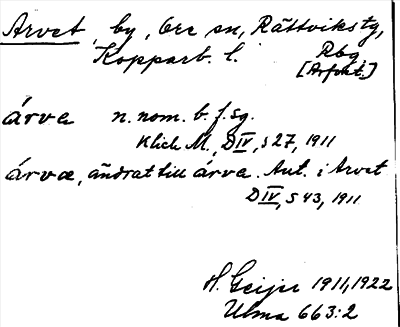 Arvet, by, Ore sn, Rättvikstg,
Kopparb. l. Rbg
[Arfvet.]
árva n. nom. b. f. sg.
Klich M., DIV, s 27, 1911
árvæ, ändrat till árva. Ant. i Arvet
DIV, s 43, 1911
H. Geijer 1911, 1922
Ulma 663:2